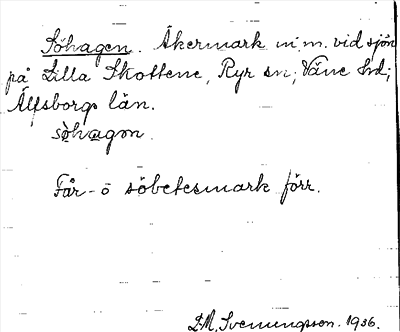 Söhagen. Åkermark m.m. vid sjön
på Lilla Skottene, Ryr sn; Väne hd;
Älfsborgs län.
söhagon.
Får- o söbetesmark förr.
D.A. Svenungsson. 1936.